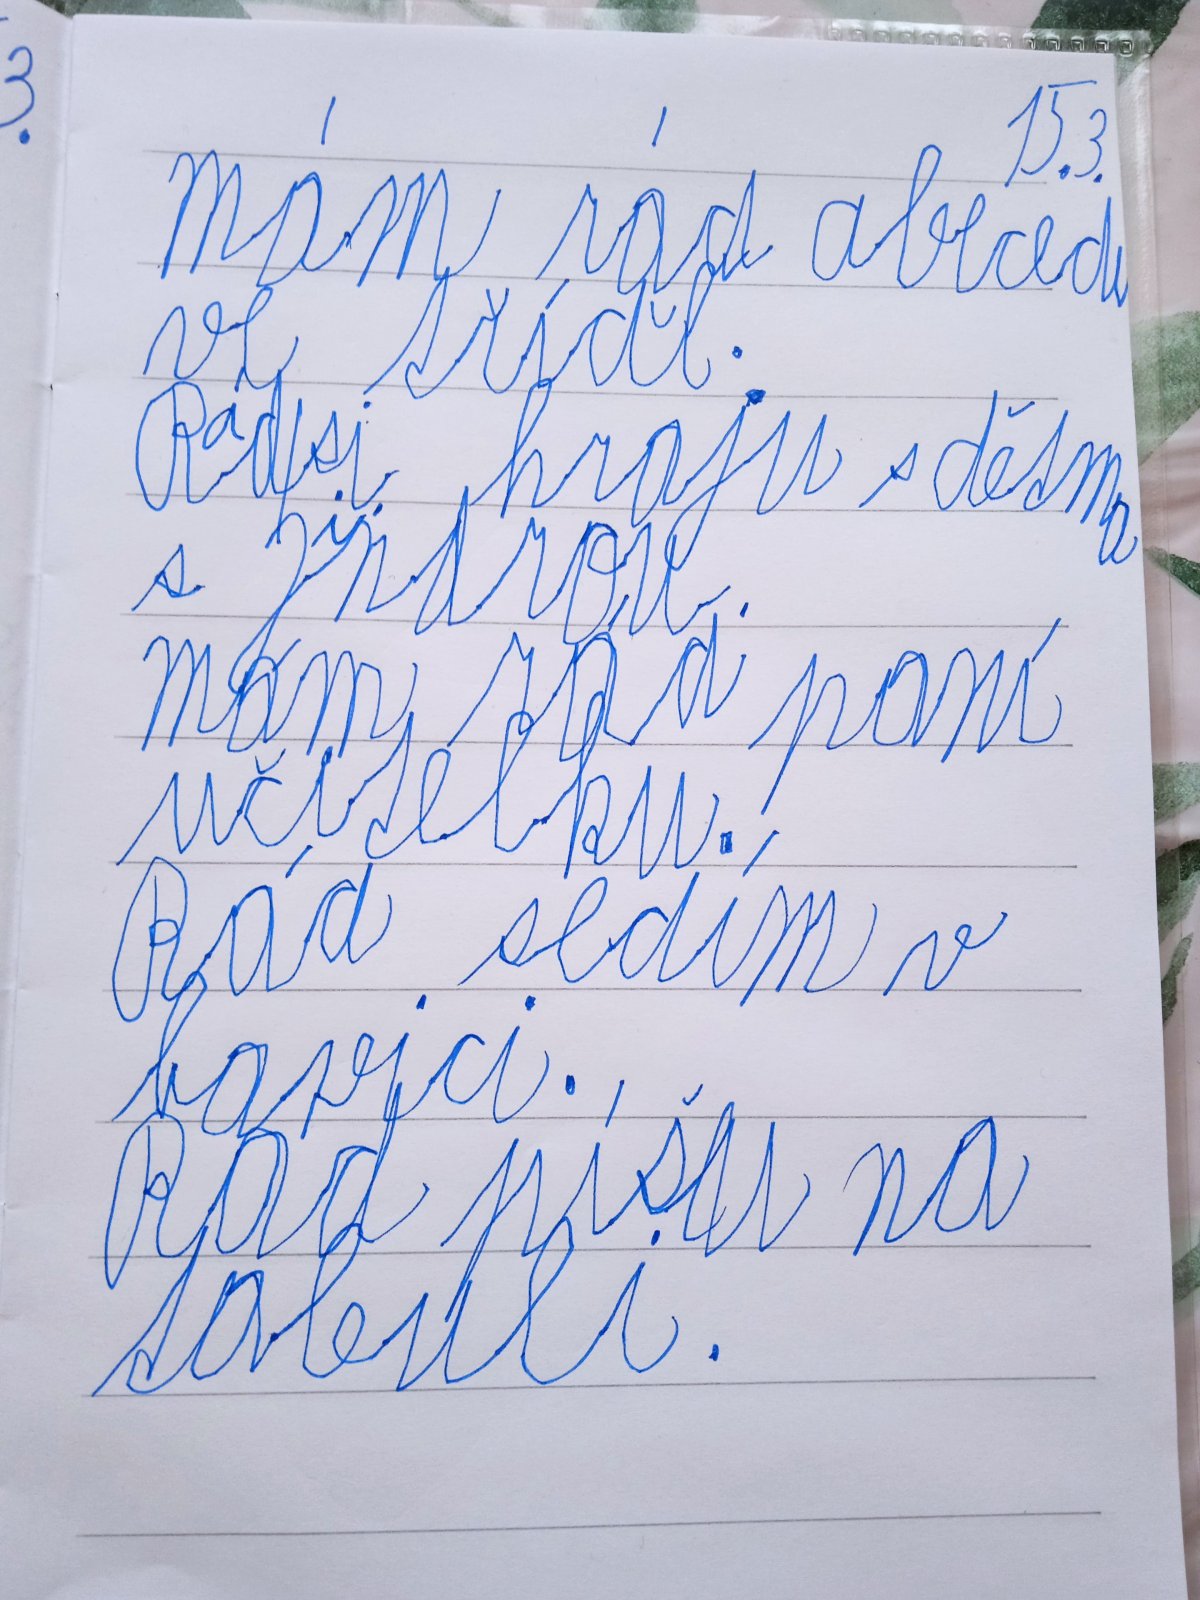 15.3.
Mám rád abecedu
ve třídě.
Rád si hraju s dětma
s Jindrou.
Mám rád paní
učitelku.
Rád sedím v
lavici.
Rád píšu na
tabuli.